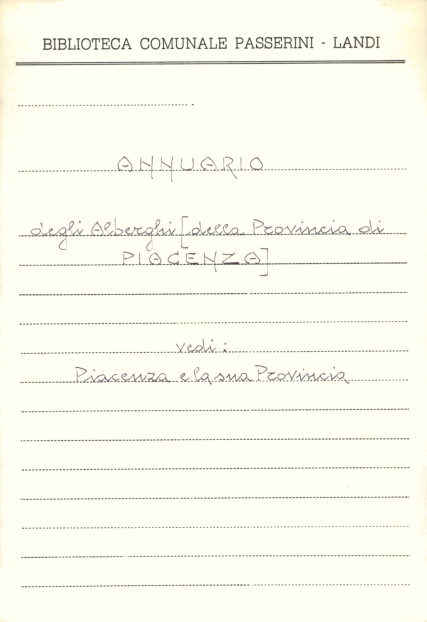 BIBLIOTECA COMUNALE PASSERINI - LANDI
ANNUARIO
degli Alberghi [della Provincia di
PIACENZA]
vedi:
Piacenza e la sua Provincia